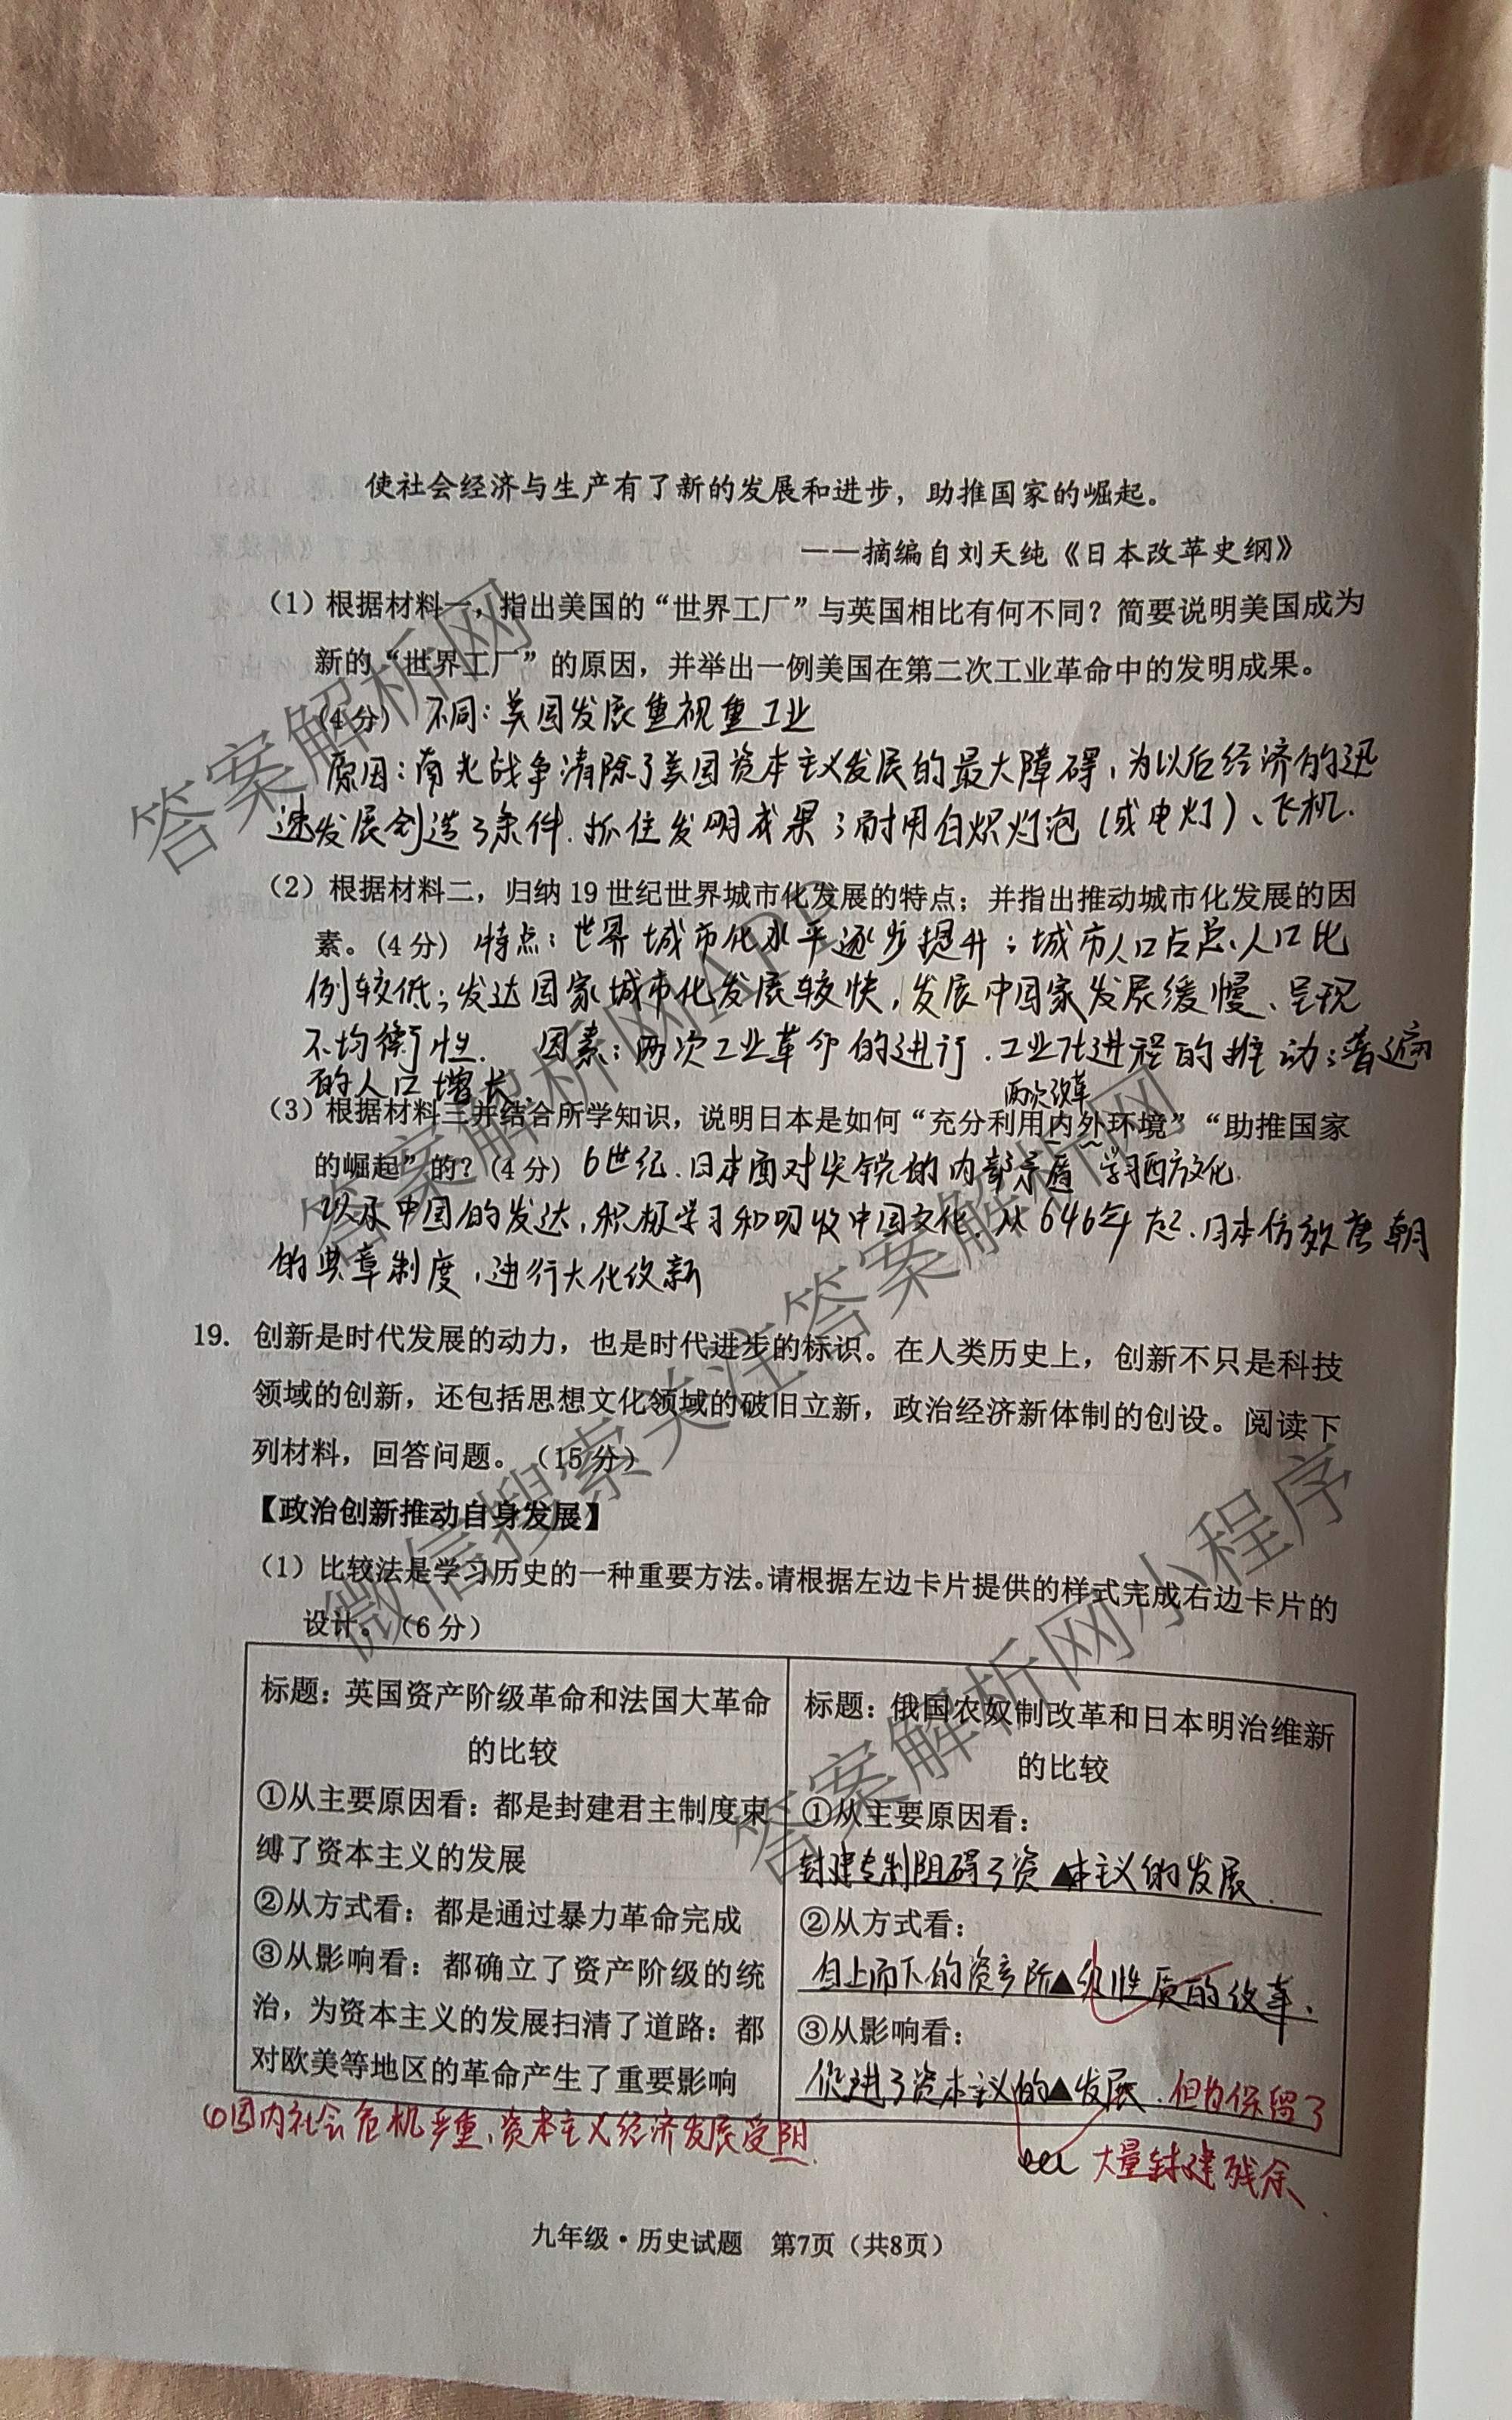 使社会经济与生产有了新的发展和进步，助推国家的崛起。
——摘编自刘天纯《日本改革史纲》
（1）根据材料一，指出美国的“世界工厂”与英国相比有何不同？简要说明美国成为
新的“世界工厂”的原因，并举出一例美国在第二次工业革命中的发明成果。
（4分） 不同：美国发展重视重工业
原因：南北战争清除了美国资本主义发展的最大障碍，为以后经济的迅
速发展创造了条件. 抓住发明成果；耐用白炽灯泡（或电灯）、飞机.
（2）根据材料二，归纳19世纪世界城市化发展的特点；并指出推动城市化发展的因
素。（4分） 特点：世界城市化水平逐步提升；城市人口占总人口比
例较低；发达国家城市化发展较快，发展中国家发展缓慢、呈现
不均衡性. 因素：两次工业革命的进行. 工业化进程的推动；普遍
的人口增长.
两次改革
（3）根据材料三并结合所学知识，说明日本是如何“充分利用内外环境”“助推国家
的崛起”的？（4分） 6世纪.日本面对尖锐的内部矛盾 学习西方文化.
以及中国的发达，积极学习和吸收中国文化. 从646年起、日本仿效唐朝
的典章制度，进行大化改新
19. 创新是时代发展的动力，也是时代进步的标识。在人类历史上，创新不只是科技
领域的创新，还包括思想文化领域的破旧立新，政治经济新体制的创设。阅读下
列材料，回答问题。（15分）
【政治创新推动自身发展】
（1）比较法是学习历史的一种重要方法。请根据左边卡片提供的样式完成右边卡片的
设计。（6分）
标题：英国资产阶级革命和法国大革命
的比较
①从主要原因看：都是封建君主制度束
缚了资本主义的发展
②从方式看：都是通过暴力革命完成
③从影响看：都确立了资产阶级的统
治，为资本主义的发展扫清了道路；都
对欧美等地区的革命产生了重要影响
标题：俄国农奴制改革和日本明治维新
的比较
①从主要原因看：
封建专制阻碍了资▲本主义的发展.
②从方式看：
自上而下的资产阶▲级性质的改革、
③从影响看：
促进了资本主义的▲发展.但均保留了
大量封建残余、
①国内社会危机严重、资本主义经济发展受阻.
九年级·历史试题 第7页（共8页）
答案解析网
答案解析网APP
微信搜索关注答案解析网
答案解析网小程序